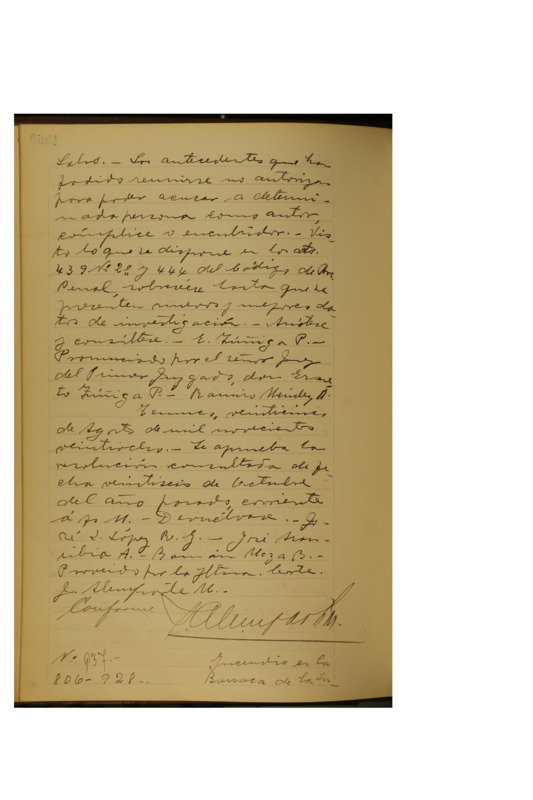 Salvo. — Los antecedentes que han
podido reunirse no autorizan
para poder acusar a determi-
nada persona como autor,
cómplice o encubridor. — Vis-
to lo que se dispone en los arts.
439 Nº 2º y 444 del Código de Pr.
Penal, sobresese hasta que se
presenten nuevos y mejores da-
tos de investigación. — Anótese
y consúltese. — E. Zúñiga P. —
Pronunciado por el señor Juez
del Primer Juzgado, don Ernes-
to Zúñiga P. — Ramiro Méndez
Temuco, veinticinco
de Agosto de mil novecientos
veintiocho. — Se aprueba la
resolución consultada de fe-
cha veintiseis de Octubre
del año pasado, corriente
á fs — Devuélvase. — Jo-
sé L. López — José Aran-
cibia A. — Román Meza B. —
Proveido por la Iltma. Corte.
J. Alemparte M. —
Conforme
Nº 937. —
806 - 928. —
Incendio en la
Barraca de la